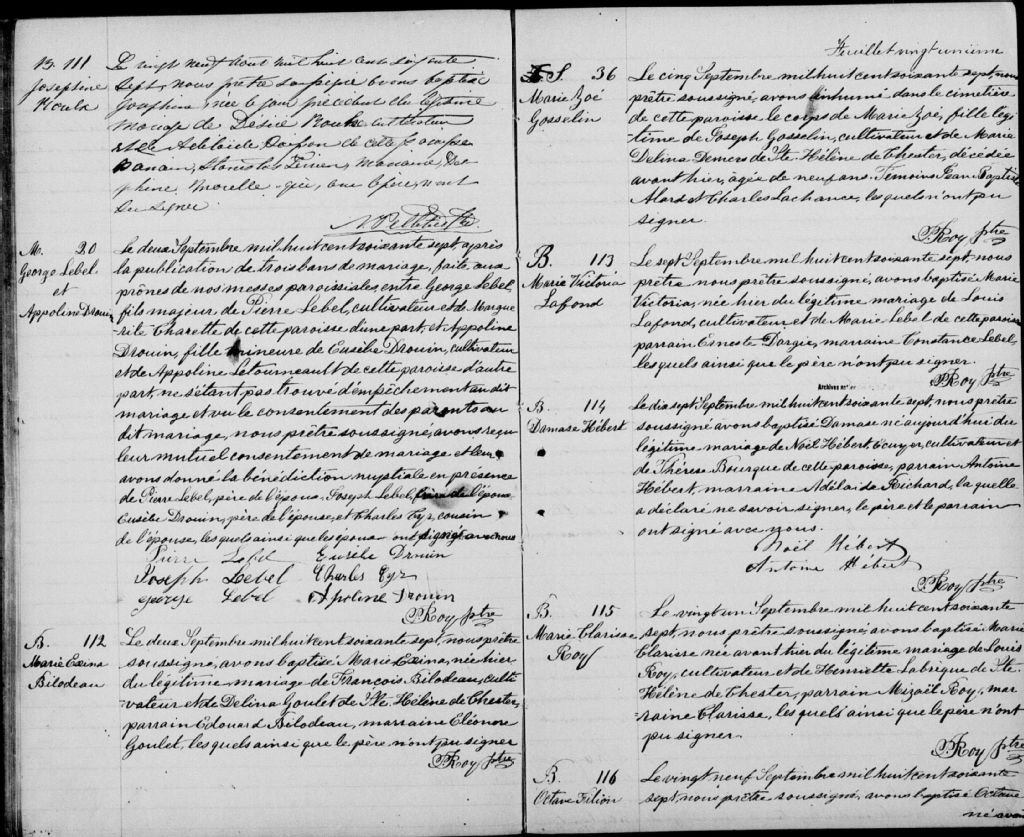 B. 111
Joséphine
Le vingt neuf Aout mil huit cent soixante
sept, nous prêtre soussigné avons baptisé
Josephine, née le jour précédent du légitime
mariage de Désiré cultivateur
et de Adelaide de cette paroisse
Parrain, Stanislas marraine,
Morelle qui, avec le père, n'ont
su signer
N Pelletier Ptre
M. 20
George Lebel
et
Appoline Drouin
Le deux Septembre mil huit cent soixante sept, après
la publication de trois bans de mariage, faite aux
prônes de nos messes paroissiales, entre George Lebel,
fils majeur de Pierre Lebel, cultivateur et de Margue
rite Charette de cette paroisse d'une part, et Appoline
Drouin, fille mineure de Eusèbe Drouin, cultivateur
et de Appoline Letourneault de cette paroisse d'autre
part, ne s'étant pas trouvé d'empêchement au dit
mariage et vu le consentement des parents au
dit mariage, nous prêtre soussigné, avons reçu
leur mutuel consentement de mariage et leur
avons donné la bénédiction nuptiale en présence
de Pierre Lebel, père de l'époux, Joseph Lebel, frère de l'époux
Eusèbe Drouin, père de l'épouse, et Charles Cyr, cousin
de l'épouse, les quels ainsi que les époux ont signé avec nous
Pierre Lebel Eusèbe Drouin
Joseph Lebel Charles Cyr
george Lebel Apoline Drouin
P. Roy ptre
B. 112
Marie Exina
Bilodeau
Le deux Septembre mil huit cent soixante sept, nous prêtre
soussigné, avons baptisé Marie Exina, née hier
du légitime mariage de François Bilodeau, culti
vateur et de Delina Goulet de Ste. Hélène de Chester,
parrain Edouard Bilodeau, marraine Eléonore
Goulet, les quels ainsi que le père n'ont pu signer
P. Roy ptre
Feuillet vingt unième
S. 36
Marie Zoé
Gosselin
Le cinq Septembre mil huit cent soixante sept, nous
prêtre soussigné, avons inhumé dans le cimetière
de cette paroisse le corps de Marie Zoé, fille légi
time de Joseph Gosselin, cultivateur et de Marie
Delina Demers de Ste. Hélène de Chester, décédée
avant hier, âgée de neuf ans. Témoins Jean Baptiste
Alard et Charles Lachance, les quels n'ont pu
signer.
P. Roy ptre
B. 113
Marie Victoria
Lafond
Le sept Septembre mil huit cent soixante sept, nous
prêtre nous prêtre soussigné, avons baptisé Marie
Victoria, née hier du légitime mariage de Louis
Lafond, cultivateur et de Marie Lebel de cette paroisse
parrain Erneste Dargie, marraine Constance Lebel,
les quels ainsi que le père n'ont pu signer.
P. Roy ptre
B. 114
Damase Hébert
Le dix sept Septembre mil huit cent soixante sept, nous prêtre
soussigné avons baptisé Damase né aujourd'hui du
légitime mariage de Noël Hébert Ecuyer, cultivateur et
de Thérèse Bourque de cette paroisse, parrain Antoine
Hébert, marraine Adélaide Richard, la quelle
a déclaré ne savoir signer, le père et le parrain
ont signé avec nous.
Noël Hébert
Antoine Hébert
P. Roy ptre
B. 115
Marie Clarisse
Roy
Le vingt un Septembre mil huit cent soixante
sept, nous prêtre soussigné, avons baptisé Marie
Clarisse née avant hier du légitime mariage de Louis
Roy, cultivateur et de Henriette Labrique de Ste.
Hélène de Chester, parrain Mizaël Roy, mar
raine Clarisse, les quels ainsi que le père n'ont
pu signer.
P. Roy ptre
B. 116
Octave Fition
Le vingt neuf Septembre mil huit cent soixante
sept, nous prêtre soussigné, avons baptisé Octave
né avan